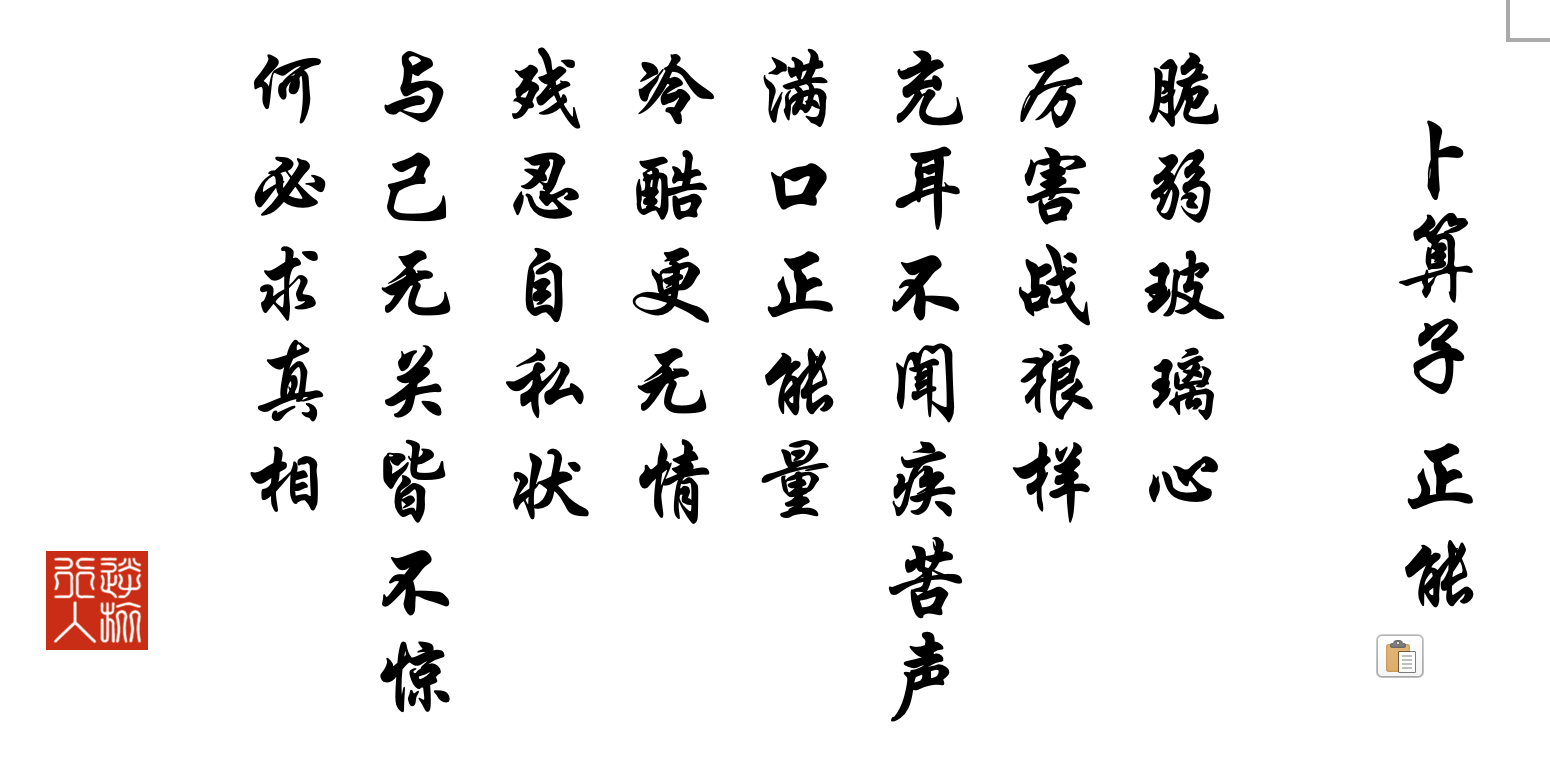 卜算子 正能
脆弱玻璃心
厉害战狼样
充耳不闻疾苦声
满口正能量
冷酷更无情
残忍自私状
与己无关皆不惊
何必求真相